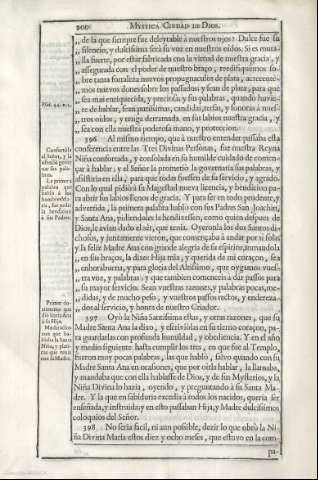 200 MYSTICA CIUDAD DE DIOS.
„ de la que siempre fue deleytable à nuestros ojos? Dulce fue su
„ silencio, y dulcissima serà su voz en nuestros oidos. Si es mura-
„ lla fuerte, por estar fabricada con la virtud de nuestra gracia, y
„ assegurada con el poder de nuestro braço, redifiquemos so-
„ bre tanta fortaleza nuevos propugnaculos de plata, acrecente-
„ mos nuevos dones sobre los passados; y sean de plata, para que
„ sea mas enriquecida, y preciosa, y sus palabras, quando huvie-
„ re de hablar, sean purissimas, candidas, tersas, y sonoras à nues-
„ tros oidos, y tenga derramada en sus labios nuestra gracia, y
„ sea con ella nuestra poderosa mano, y proteccion.
Psal. 44. v. 3.
396 Al mismo tiempo, que à nuestro entender passava esta
conferencia entre las Tres Divinas Personas, fue nuestra Reyna
Niña confortada, y consolada en su humilde cuidado de comen-
çar à hablar; y el Señor la prometiò la governaria sus palabras, y
assistiria en ella, para que todas fuessen de su servicio, y agrado.
Con lo qual pidiò à su Magestad nueva licencia, y bendicion pa-
ra abrir sus labios llenos de gracia. Y para ser en todo prudente, y
advertida, la primera palabra hablò con sus Padres San Joachin,
y Santa Ana, pidiendoles la bendicion, como quien despues de
Dios, le avian dado el sèr, que tenia. Oyeronla los dos Santos di-
chosos, y juntamente vieron, que començaba à andar por sì sola:
y la feliz Madre Ana con grande alegria de su espiritu, tomandola
en sus braços, la dixo: Hija mia, y querida de mi coraçon, sea
enhorabuena, y para gloria del Altissimo, que oygamos vues-
tra voz, y palabras; y que tambien comenceis à dàr passos para
su mayor servicio. Sean vuestras razones, y palabras pocas, me-
didas, y de mucho peso, y vuestros passos rectos, y endereza-
dos al servicio, y honra de nuestro Criador.
Confortòla
el Señor, y la
La primera
palabra que
hablò à los
hombres Ma-
ria, fue pedir
la bendicion
à sus Padres.
397 Oyò la Niña Santissima estas, y otras razones, que su
Madre Santa Ana la dixo, y escriviòlas en su tierno coraçon, pa-
ra guardarlas con profunda humildad, y obediencia. Y en el año
y medio siguiente hasta cumplir los tres, en que fue al Templo,
fueron muy pocas palabras, las que hablò, salvo quando con su
Madre Santa Ana en ocasiones, que por oirla hablar, la llamaba,
y mandaba que con ella hablasse de Dios, y de sus Mysterios, y la
Niña Divina lo hazia, oyendo, y preguntando à su Santa Ma-
dre. Y la que en sabiduria excedia à todos los nacidos, queria ser
enseñada, y instruida; y en esto passaban Hija, y Madre dulcissimos
coloquios del Señor.
à su Hija.
398 No seria facil, ni aun possible, dezir lo que obrò la Ni-
ña Divina Maria estos diez y ocho meses, que estuvo en la com-
pa-